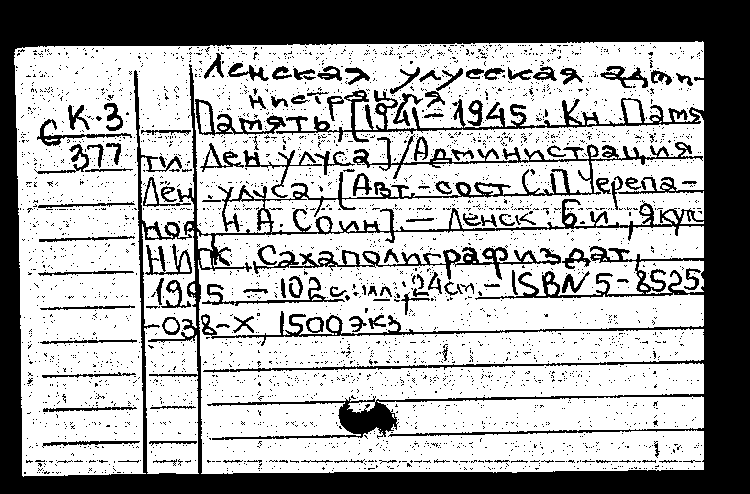 Ленская улусская адми-
нистрация
С К-3
377
Память, [1941-1945: Кн. Памя
ти Лен. улуса] / Администрация
Лен. улуса; [Авт.-сост С.П. Черепа-
нов, Н.А. Соин]. - Ленск: Б.и.; Якутс
НИПК "Сахаполиграфиздат,
1995. - 102 с.: ил.; 24 см. - ISBN 5-85259
-038-X, 1500 экз.